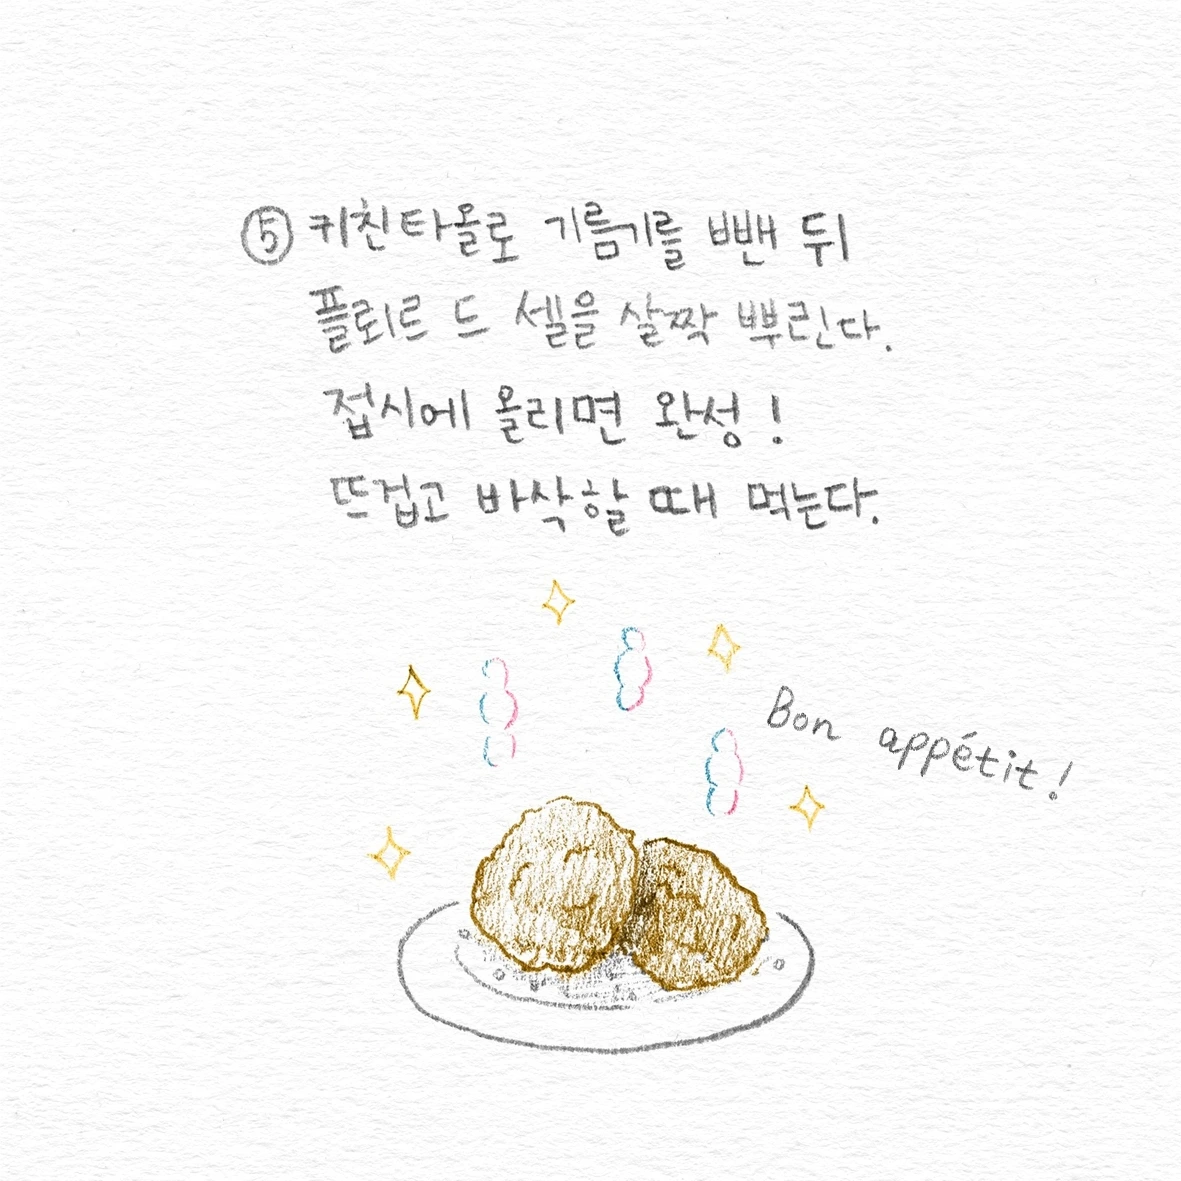 ⑤ 키친타올로 기름기를 뺀 뒤
플뢰르 드 셀을 살짝 뿌린다.
접시에 올리면 완성!
뜨겁고 바삭할 때 먹는다.
Bon appétit!